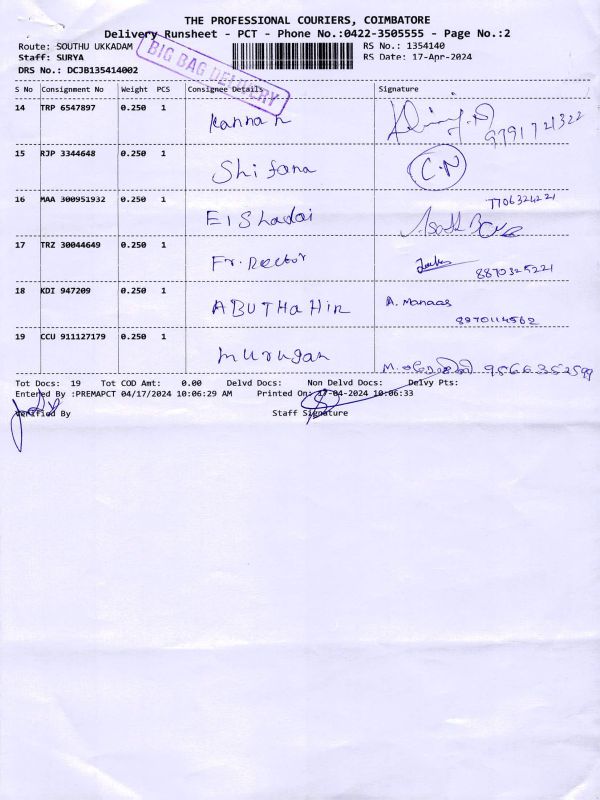 THE PROFESSIONAL COURIERS, COIMBATORE
Delivery Runsheet - PCT - Phone No.:0422-3505555 - Page No.:2
Route: SOUTHU UKKADAM
RS No.: 1354140
Staff: SURYA
RS Date: 17-Apr-2024
DRS No.: DCJB135414002
BIG BAG DELIVERY
S No Consignment No Weight PCS Consignee Details Signature
14 TRP 6547897 0.250 1 Kannan
9791721322
15 RJP 3344648 0.250 1 Shifana C.N
16 MAA 300951932 0.250 1 El Shadai
7706324221
17 TRZ 30044649 0.250 1 Fr. Rector
8870325221
18 KDI 947209 0.250 1 ABUTHAHIR A. Manaas
8970114562
19 CCU 911127179 0.250 1 Murugan
M. 9566352599
Tot Docs: 19 Tot COD Amt: 0.00 Delvd Docs: Non Delvd Docs: Delvy Pts:
Entered By :PREMAPCT 04/17/2024 10:06:29 AM Printed On: 17-04-2024 10:06:33
Verified By Staff Signature